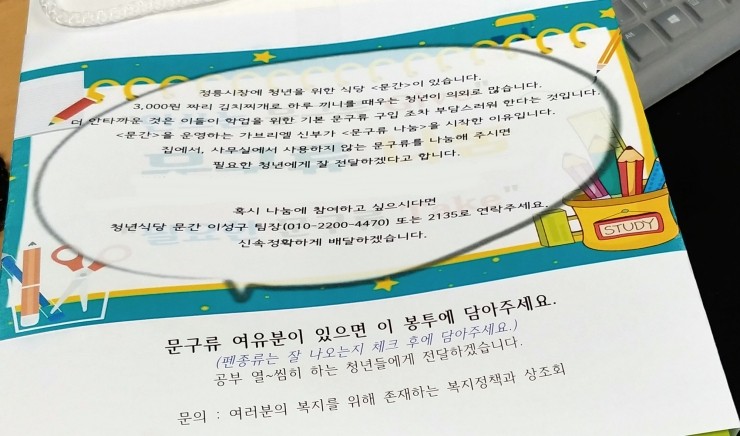 정릉시장에 청년을 위한 식당 <문간>이 있습니다.
3,000원 짜리 김치찌개로 하루 끼니를 때우는 청년이 의외로 많습니다.
더 안타까운 것은 이들이 학업을 위한 기본 문구류 구입 조차 부담스러워 한다는 것입니다.
<문간>을 운영하는 가브리엘 신부가 <문구류 나눔>을 시작한 이유입니다.
집에서, 사무실에서 사용하지 않는 문구류를 나눔해 주시면
필요한 청년에게 잘 전달하겠다고 합니다.
혹시 나눔에 참여하고 싶으시다면
청년식당 문간 이성구 팀장(010-2200-4470) 또는 2135로 연락주세요.
신속정확하게 배달하겠습니다.
STUDY
문구류 여유분이 있으면 이 봉투에 담아주세요.
(펜종류는 잘 나오는지 체크 후에 담아주세요.)
공부 열~씸히 하는 청년들에게 전달하겠습니다.
문의 : 여러분의 복지를 위해 존재하는 복지정책과 상조회